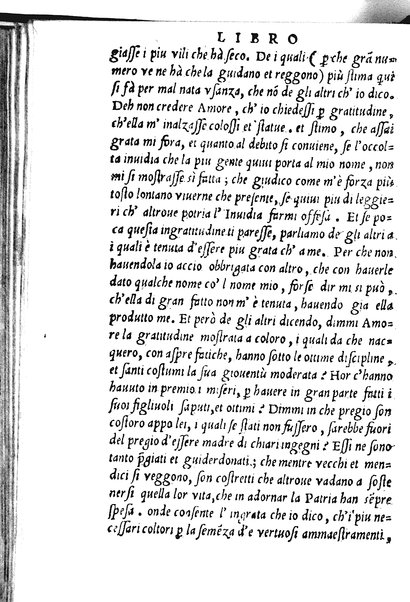 LIBRO
giasse i piu vili che hà seco. De i quali (ꝑche grā nu-
mero ve ne hà che la guidano et reggono) più stima qui
si fà per mal nata vsanza, che nō de gli altri ch' io dico.
Deh non credere Amore, ch' io chiedessi ꝑ gratitudine,
ch'ella m' inalzasse colossi et statue. et stimo, che assai
grata mi fora, et quanto al debito si conuiene, se l'occol-
ta inuidia che la piu gente quiui porta al mio nome, non
mi si mostrasse sì fatta; che giudico come m'è forza più
tosto lontano viuerne che presente, se quiui piu di leggie-
ri ch' altroue potria l' Inuidia farmi offesa. Et se po-
ca questa ingratitudine ti paresse, parliamo de gli altri a
i quali è tenuta d'essere piu grata ch' a me. Per che non
hauendola io accio obbrigata con altro, che con hauerle
dato qualche nome co' l nome mio, forse dir mi si può,
ch'ella di gran fatto non m' è tenuta, hauendo gia ella
produtto me. Et però de gli altri dicendo, dimmi Amo-
re la gratitudine mostrata a coloro, i quali da che nac-
quero, con aspre fatiche, hanno sotto le ottime discipline,
et santi costumi la sua giouentù moderata? Hor c'hanno
hauuto in premio i miseri, ꝑ hauere in gran parte fatti i
suoi figliuoli saputi, et ottimi? Dimmi in che pregio son
costoro appo lei, i quali se stati non fussero, sarebbe fuori
del pregio d'essere madre di chiari ingegni? Essi ne sono
tanto p̄giati et guiderdonati; che mentre vecchi et men-
dici si veggono, son costretti che altroue vadano a soste
nersi quella lor vita, che in adornar la Patria han sēpre
spesa. onde consente l' ingrata che io dico, ch'i piu ne-
cessari coltori ꝑ la semēza d'e vertuosi ammaestramenti,